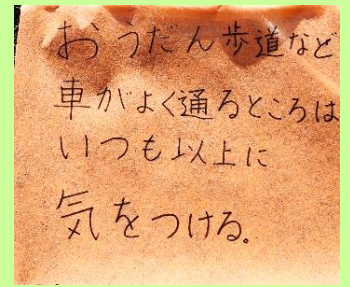 おうだん歩道など
車がよく通るところは
いつも以上に
気をつける。